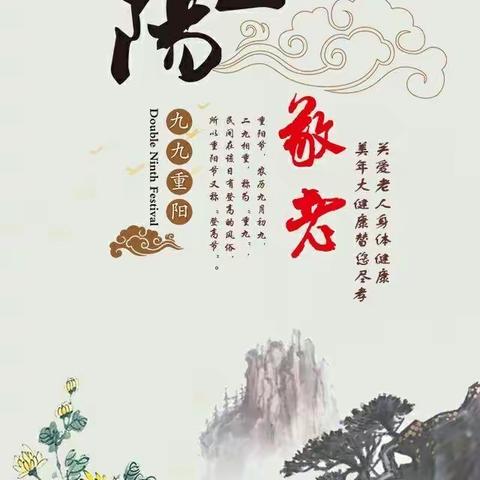 陽
敬老
关爱老人身体健康
美年大健康替您尽孝
重阳节，农历九月初九，
二九相重，称为“重九”，
民间在该日有登高的风俗，
所以重阳节又称“登高节”。
九九重阳
Double Ninth Festival